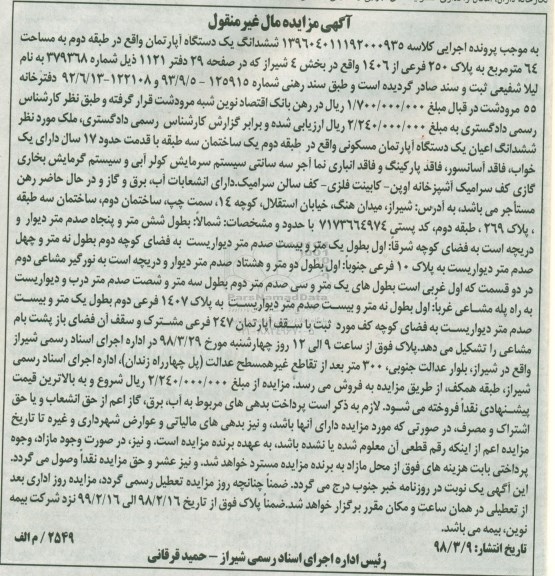 آگهی مزایده مال غیرمنقول
به موجب پرونده اجرایی کلاسه ۱۳۹۶۰۴۰۱۱۱۹۲۰۰۰۹۳۵ ششدانگ یک دستگاه آپارتمان واقع در طبقه دوم به مساحت
۶۴ مترمربع به پلاک ۲۵۰ فرعی از ۱۴۰۶ واقع در بخش ۴ شیراز که در صفحه ۲۹ دفتر ۱۱۲۱ ذیل شماره ۳۷۹۳۶۸ به نام
لیلا شفیعی ثبت و سند صادر گردیده است و طبق سند رهنی شماره ۱۲۵۹۱۵ - ۹۳/۹/۵ و ۱۲۲۱۰۸-۹۲/۶/۱۳ دفترخانه
۵۵ مرودشت در قبال مبلغ ۱/۷۰۰/۰۰۰/۰۰۰ ریال در رهن بانک اقتصاد نوین شبه مرودشت قرار گرفته و طبق نظر کارشناس
رسمی دادگستری به مبلغ ۲/۲۴۰/۰۰۰/۰۰۰ ریال ارزیابی شده و برابر گزارش کارشناس رسمی دادگستری، ملک مورد نظر
ششدانگ اعیان یک دستگاه آپارتمان مسکونی واقع در طبقه دوم یک ساختمان سه طبقه با قدمت حدود ۱۷ سال دارای یک
خواب، فاقد آسانسور، فاقد پارکینگ و فاقد انباری نما آجر سه سانتی سیستم سرمایش کولر آبی و سیستم گرمایش بخاری
گازی کف سرامیک آشپزخانه اوپن- کابینت فلزی - کف سالن سرامیک.دارای انشعابات آب، برق و گاز و در حال حاضر رهن
مستأجر می باشد، به آدرس: شیراز، میدان هنگ، خیابان استقلال، کوچه ۱۴، سمت چپ، ساختمان دوم، ساختمان سه طبقه
، پلاک ۲۶۹ ، طبقه دوم، کد پستی ۷۱۷۳۶۶۴۹۷۴ با حدود و مشخصات: شمالاً: بطول شش متر و پنجاه صدم متر دیوار و
دریچه است به فضای کوچه شرقاً: اول بطول یک متر و بیست صدم متر دیواریست به فضای کوچه دوم بطول نه متر و چهل
صدم متر دیواریست به پلاک ۱۰ فرعی جنوباً: اول بطول دو متر و هشتاد صدم متر دیوار و دریچه است به نورگیر مشاعی دوم
در دو قسمت که اول غربی است بطول های یک متر و سی صدم متر دوم بطول سه متر و شصت صدم متر درب و دیواریست
به راه پله مشاعی غرباً: اول بطول نه متر و بیست صدم متر دیواریست به پلاک ۱۴۰۷ فرعی دوم بطول یک متر و بیست
صدم متر دیواریست به فضای کوچه کف مورد ثبت با سقف آپارتمان ۲۴۷ فرعی مشترک و سقف آن فضای باز پشت بام
مشاعی را تشکیل می دهد.پلاک فوق از ساعت ۹ الی ۱۲ روز چهارشنبه مورخ ۹۸/۳/۲۹ در اداره اجرای اسناد رسمی شیراز
واقع در شیراز، بلوار عدالت جنوبی، ۳۰۰ متر بعد از تقاطع غیرهمسطح عدالت (پل چهارراه زندان)، اداره اجرای اسناد رسمی
شیراز، طبقه همکف، از طریق مزایده به فروش می رسد. مزایده از مبلغ ۲/۲۴۰/۰۰۰/۰۰۰ ریال شروع و به بالاترین قیمت
پیشنهادی نقداً فروخته می شود. لازم به ذکر است پرداخت بدهی های مربوط به آب، برق، گاز اعم از حق انشعاب و یا حق
اشتراک و مصرف، در صورتی که مورد مزایده دارای آنها باشد، و نیز بدهی های مالیاتی و عوارض شهرداری و غیره تا تاریخ
مزایده اعم از اینکه رقم قطعی آن معلوم شده یا نشده باشد، به عهده برنده مزایده است. و نیز، در صورت وجود مازاد، وجوه
پرداختی بابت هزینه های فوق از محل مازاد به برنده مزایده مسترد خواهد شد. و نیز عشر و حق مزایده نقداً وصول می گردد.
این آگهی یک نوبت در روزنامه خبر جنوب درج می گردد. ضمناً چنانچه روز مزایده تعطیل رسمی گردد، مزایده روز اداری بعد
از تعطیلی در همان ساعت و مکان مقرر برگزار خواهد شد.ضمناً پلاک فوق از تاریخ ۹۸/۲/۱۶ الی ۹۹/۲/۱۶ نزد شرکت بیمه
نوین، بیمه می باشد.
تاریخ انتشار: ۹۸/۳/۹
۲۵۴۹ / م الف
رئیس اداره اجرای اسناد رسمی شیراز - حمید فرقانی